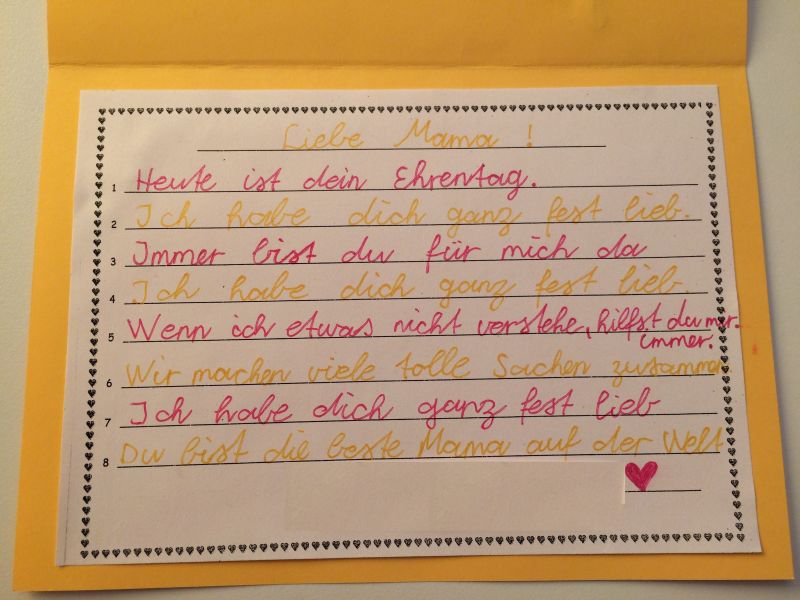 Liebe Mama !
1 Heute ist dein Ehrentag.
2 Ich habe dich ganz fest lieb.
3 Immer bist du für mich da
4 Ich habe dich ganz fest lieb.
5 Wenn ich etwas nicht verstehe, hilfst du mir.
immer.
6 Wir machen viele tolle Sachen zusammen
7 Ich habe dich ganz fest lieb
8 Du bist die beste Mama auf der Welt